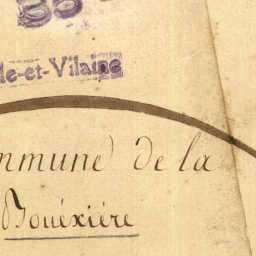 le-et-Vilaine
mmune de la
Bouëxière